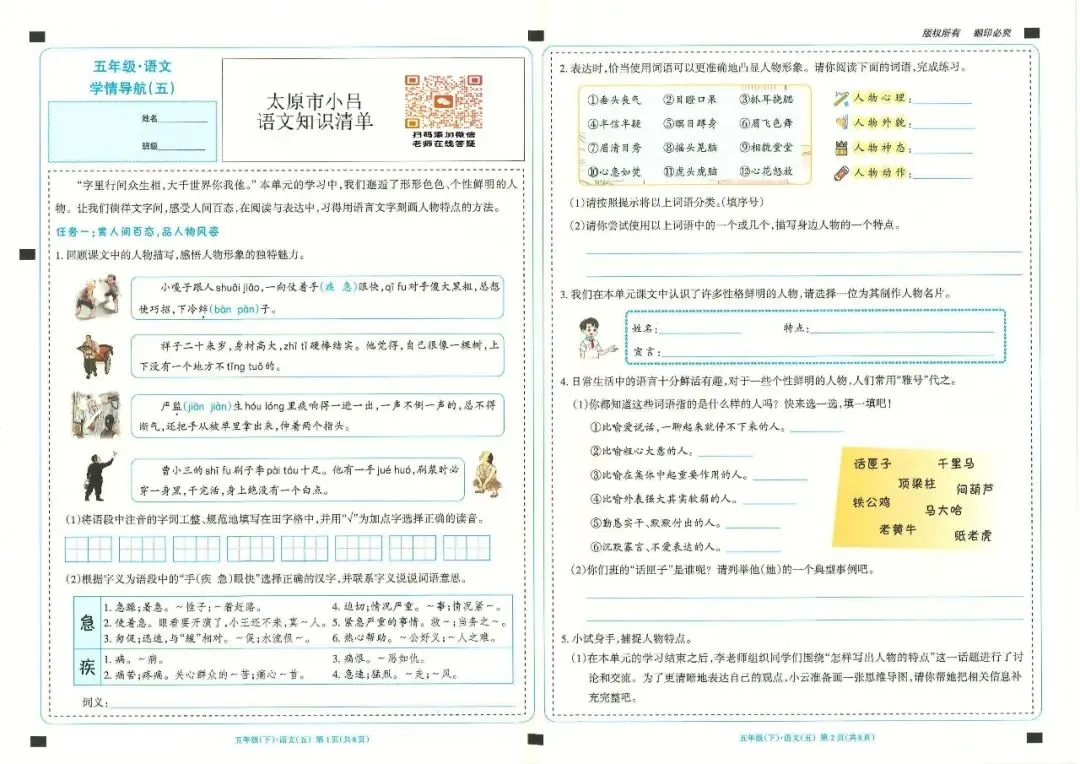 版权所有 翻印必究
五年级·语文
学情导航(五)
姓名
班级
太原市小吕
语文知识清单
扫码添加微信
老师在线答疑
“字里行间众生相,大千世界你我他。”本单元的学习中,我们邂逅了形形色色、个性鲜明的人
物。让我们徜徉文字间,感受人间百态,在阅读与表达中,习得用语言文字刻画人物特点的方法。
任务一:赏人间百态,品人物风姿
1.回顾课文中的人物描写,感悟人物形象的独特魅力。
小嘎子跟人shuāi jiāo,一向仗着手(疾 急)眼快,qī fu对手傻大黑粗,总想
使巧招,下冷绊(bàn pàn)子。
祥子二十来岁,身材高大,zhī tǐ硬棒结实。他觉得,自己很像一棵树,上
下没有一个地方不tǐng tuō的。
严监(jiān jiàn)生hóu lóng里痰响得一进一出,一声不倒一声的,总不得
断气,还把手从被单里拿出来,伸着两个指头。
曹小三的shī fu刷子李pài tóu十足。他有一手jué huó,刷浆时必
穿一身黑,干完活,身上绝没有一个白点。
(1)将语段中注音的字词工整、规范地填写在田字格中,并用“√”为加点字选择正确的读音。
(2)根据字义为语段中的“手(疾 急)眼快”选择正确的汉字,并联系字义说说词语意思。
急
1.急躁;着急。~性子;~着赶路。
2.使着急。眼看要开演了,小王还不来,真~人。
3.匈促;迅速,与“缓”相对。~促;水流很~。
4.迫切;情况严重。~事;情况紧~。
5.紧急严重的事情。救~;当务之~。
6.热心帮助。~公好义;~人之难。
疾
1.病。~病。
2.痛苦;疼痛。关心群众的~苦;痛心~首。
3.痛恨。~恶如仇。
4.急速;猛烈。~走;~风。
词义:
五年级(下)·语文(五) 第1页(共8页)
2.表达时,恰当使用词语可以更准确地凸显人物形象。请你阅读下面的词语,完成练习。
①垂头丧气 ②目瞪口呆 ③抓耳挠腮
④半信半疑 ⑤瞑目蹲身 ⑥眉飞色舞
⑦眉清目秀 ⑧摇头晃脑 ⑨相貌堂堂
⑩心急如焚 ⑪虎头虎脑 ⑫心花怒放
人物心理:
人物外貌:
人物神态:
人物动作:
(1)请按照提示将以上词语分类。(填序号)
(2)请你尝试使用以上词语中的一个或几个,描写身边人物的一个特点。
3.我们在本单元课文中认识了许多性格鲜明的人物,请选择一位为其制作人物名片。
姓名: 特点:
宣言:
4.日常生活中的语言十分鲜活有趣,对于一些个性鲜明的人物,人们常用“雅号”代之。
(1)你都知道这些词语指的是什么样的人吗?快来选一选,填一填吧!
①比喻爱说话,一聊起来就停不下来的人。
②比喻粗心大意的人。
③比喻在集体中起重要作用的人。
④比喻外表强大其实软弱的人。
⑤勤恳实干、默默付出的人。
⑥沉默寡言、不爱表达的人。
话匣子 千里马
顶梁柱 闷葫芦
铁公鸡 马大哈
老黄牛 纸老虎
(2)你们班的“话匣子”是谁呢?请列举他(她)的一个典型事例吧。
5.小试身手,捕捉人物特点。
(1)在本单元的学习结束之后,李老师组织同学们围绕“怎样写出人物的特点”这一话题进行了讨
论和交流。为了更清晰地表达自己的观点,小云准备画一张思维导图,请你帮她把相关信息补
充完整吧。
五年级(下)·语文(五) 第2页(共8页)